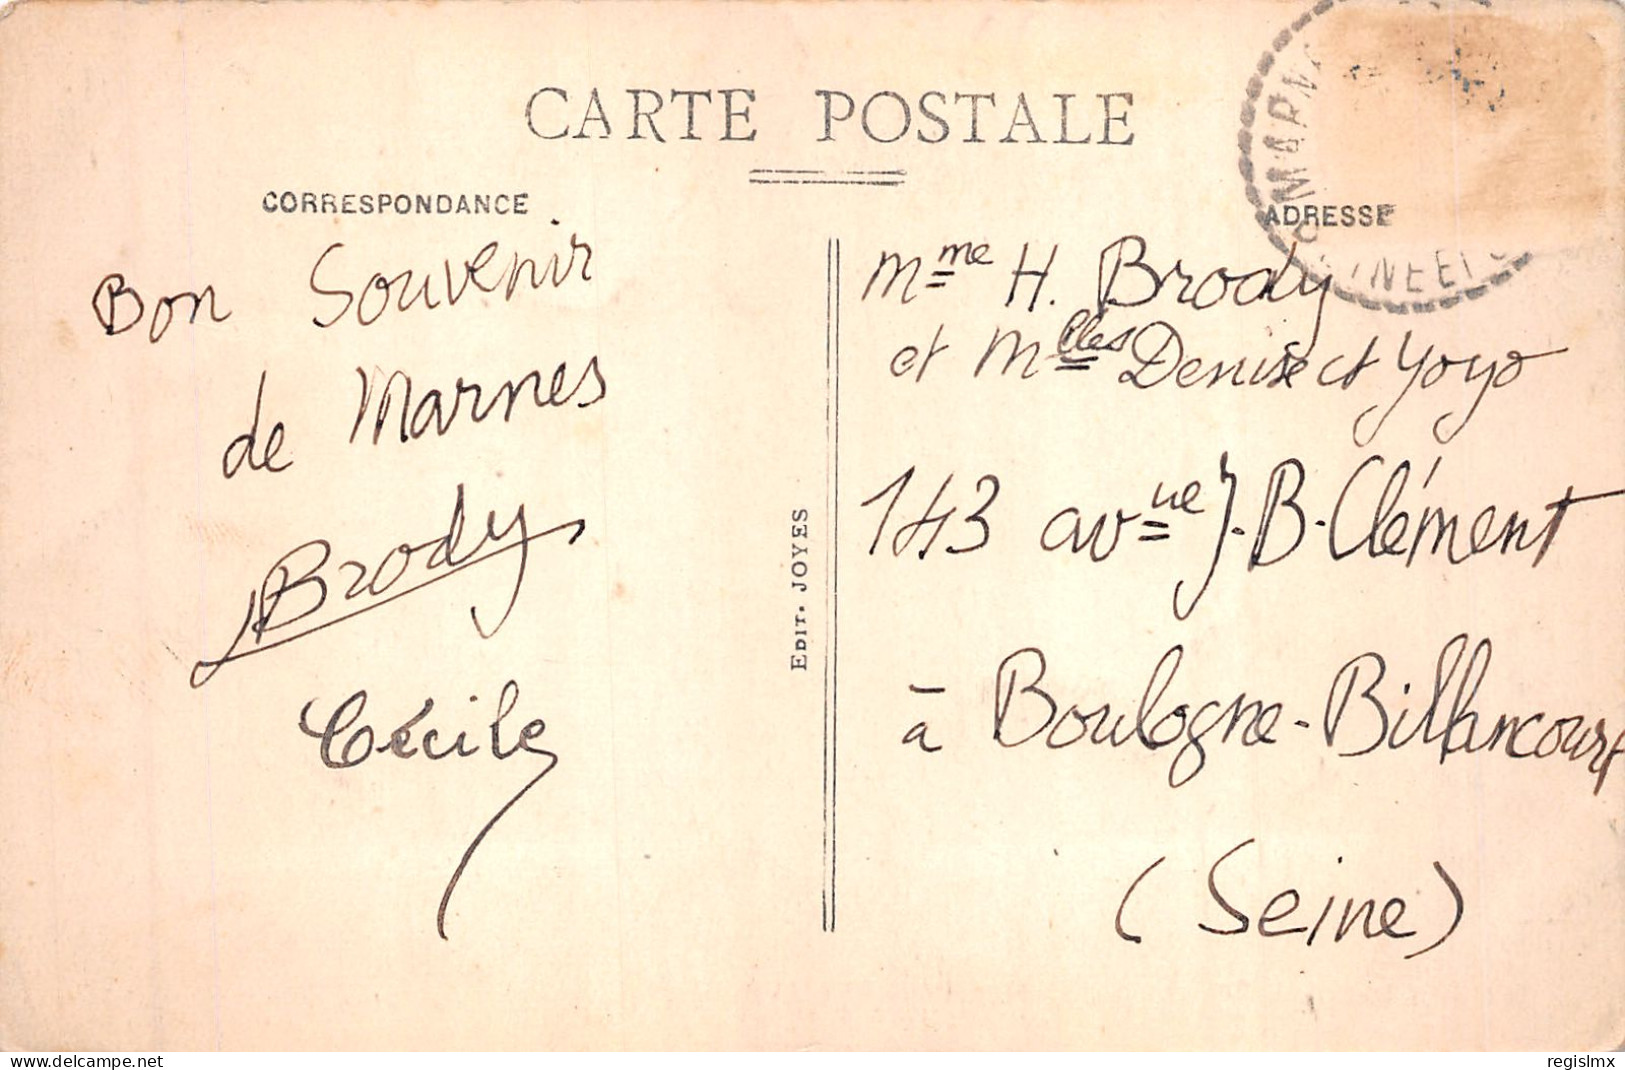 CARTE POSTALE
CORRESPONDANCE
Bon Souvenir
de Marnes
Brody
Cécile
EDIT. JOYES
ADRESSE
Mme H. Brody
et Mlles Denise et Yoyo
143 avnue J.B. Clément
à Boulogne-Billancourt
(Seine)
delcampe.net
regislmx